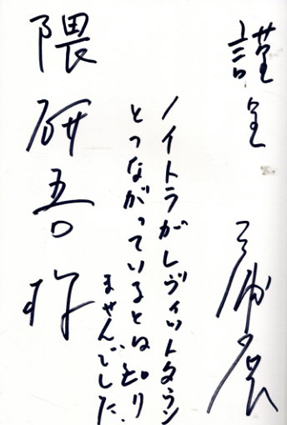 謹呈 三浦展
ノイトラがレヴィットタウン
とつながっているとは知り
ませんでした。
隈研吾様